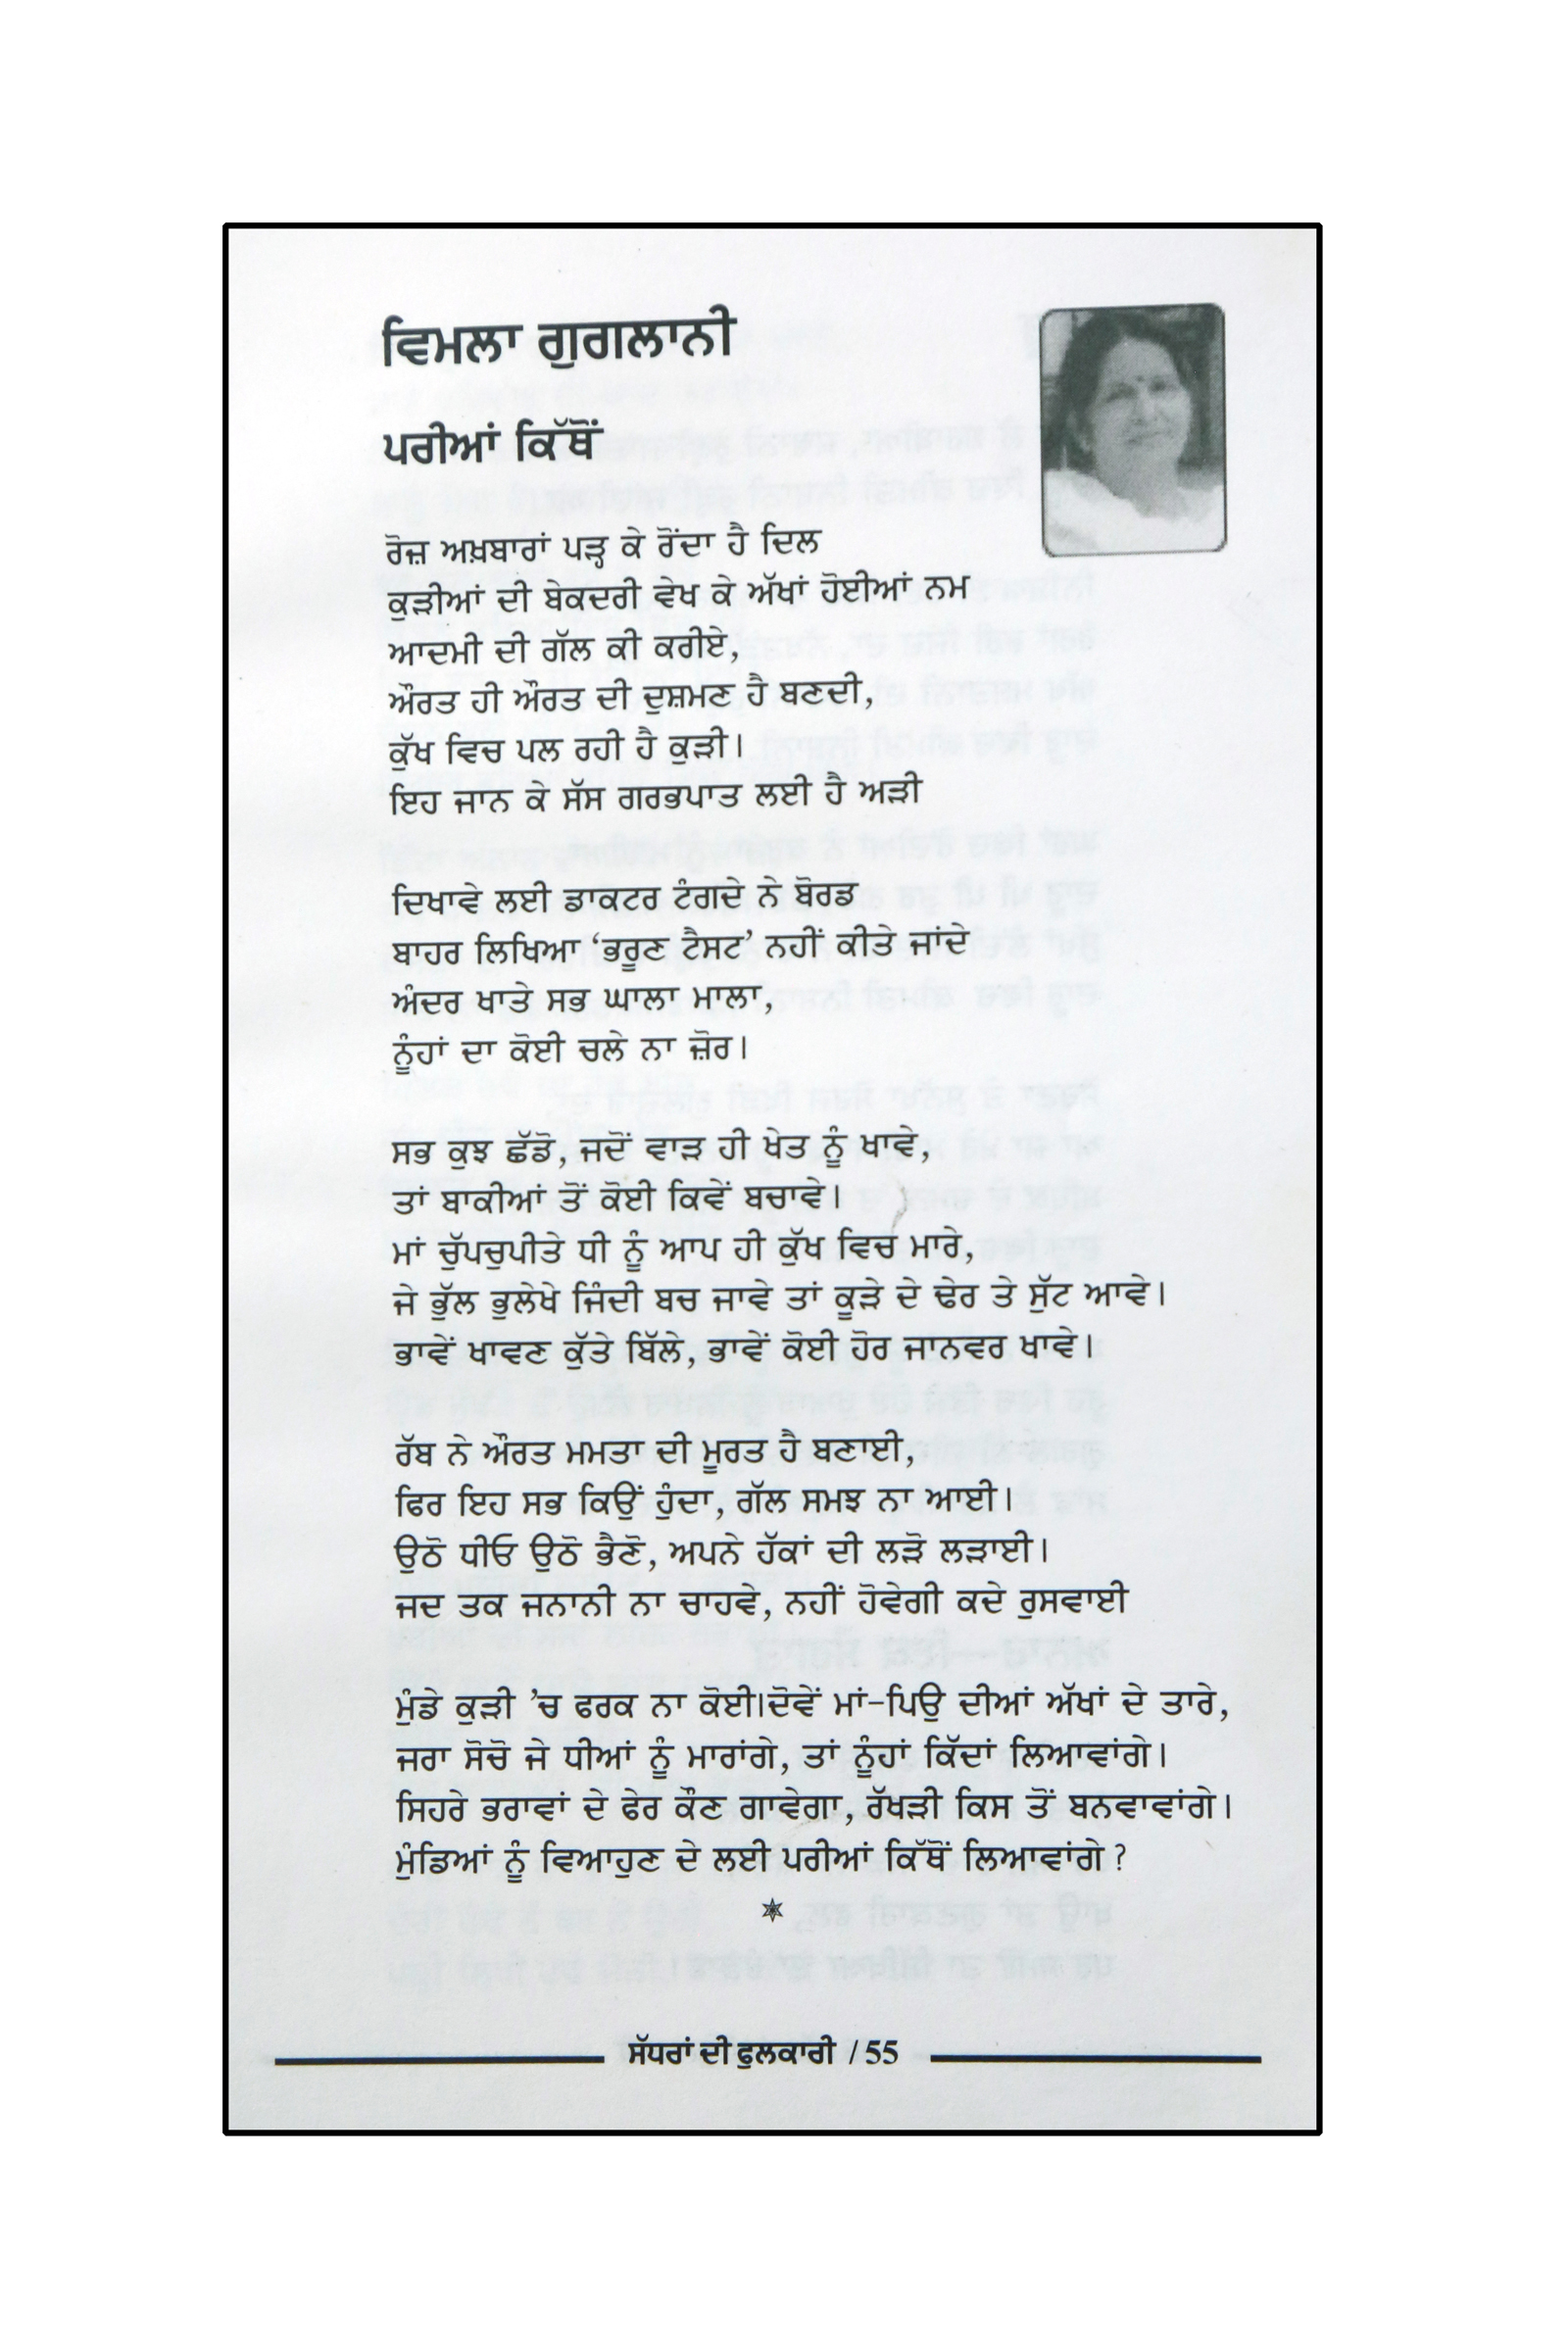 ਵਿਮਲਾ ਗੁਗਲਾਨੀ
ਪਰੀਆਂ ਕਿੱਥੋਂ
ਰੋਜ਼ ਅਖ਼ਬਾਰਾਂ ਪੜ੍ਹ ਕੇ ਰੋਂਦਾ ਹੈ ਦਿਲ
ਕੁੜੀਆਂ ਦੀ ਬੇਕਦਰੀ ਵੇਖ ਕੇ ਅੱਖਾਂ ਹੋਈਆਂ ਨਮ
ਆਦਮੀ ਦੀ ਗੱਲ ਕੀ ਕਰੀਏ,
ਔਰਤ ਹੀ ਔਰਤ ਦੀ ਦੁਸ਼ਮਣ ਹੈ ਬਣਦੀ,
ਕੁੱਖ ਵਿਚ ਪਲ ਰਹੀ ਹੈ ਕੁੜੀ।
ਇਹ ਜਾਨ ਕੇ ਸੱਸ ਗਰਭਪਾਤ ਲਈ ਹੈ ਅੜੀ
ਦਿਖਾਵੇ ਲਈ ਡਾਕਟਰ ਟੰਗਦੇ ਨੇ ਬੋਰਡ
ਬਾਹਰ ਲਿਖਿਆ ‘ਭਰੂਣ ਟੈਸਟ’ ਨਹੀਂ ਕੀਤੇ ਜਾਂਦੇ
ਅੰਦਰ ਖਾਤੇ ਸਭ ਘਾਲਾ ਮਾਲਾ,
ਨੂੰਹਾਂ ਦਾ ਕੋਈ ਚਲੇ ਨਾ ਜ਼ੋਰ।
ਸਭ ਕੁਝ ਛੱਡੋ, ਜਦੋਂ ਵਾੜ ਹੀ ਖੇਤ ਨੂੰ ਖਾਵੇ,
ਤਾਂ ਬਾਕੀਆਂ ਤੋਂ ਕੋਈ ਕਿਵੇਂ ਬਚਾਵੇ।
ਮਾਂ ਚੁੱਪਚੁਪੀਤੇ ਧੀ ਨੂੰ ਆਪ ਹੀ ਕੁੱਖ ਵਿਚ ਮਾਰੇ,
ਜੇ ਭੁੱਲ ਭੁਲੇਖੇ ਜਿੰਦੀ ਬਚ ਜਾਵੇ ਤਾਂ ਕੂੜੇ ਦੇ ਢੇਰ ਤੇ ਸੁੱਟ ਆਵੇ।
ਭਾਵੇਂ ਖਾਵਣ ਕੁੱਤੇ ਬਿੱਲੇ, ਭਾਵੇਂ ਕੋਈ ਹੋਰ ਜਾਨਵਰ ਖਾਵੇ।
ਰੱਬ ਨੇ ਔਰਤ ਮਮਤਾ ਦੀ ਮੂਰਤ ਹੈ ਬਣਾਈ,
ਫਿਰ ਇਹ ਸਭ ਕਿਉਂ ਹੁੰਦਾ, ਗੱਲ ਸਮਝ ਨਾ ਆਈ।
ਉਠੋ ਧੀਓ ਉਠੋ ਭੈਣੋ, ਅਪਨੇ ਹੱਕਾਂ ਦੀ ਲੜੋ ਲੜਾਈ।
ਜਦ ਤਕ ਜਨਾਨੀ ਨਾ ਚਾਹਵੇ, ਨਹੀਂ ਹੋਵੇਗੀ ਕਦੇ ਰੁਸਵਾਈ
ਮੁੰਡੇ ਕੁੜੀ ’ਚ ਫਰਕ ਨਾ ਕੋਈ।ਦੋਵੇਂ ਮਾਂ-ਪਿਉ ਦੀਆਂ ਅੱਖਾਂ ਦੇ ਤਾਰੇ,
ਜਰਾ ਸੋਚੋ ਜੇ ਧੀਆਂ ਨੂੰ ਮਾਰਾਂਗੇ, ਤਾਂ ਨੂੰਹਾਂ ਕਿੱਦਾਂ ਲਿਆਵਾਂਗੇ।
ਸਿਹਰੇ ਭਰਾਵਾਂ ਦੇ ਫੇਰ ਕੌਣ ਗਾਵੇਗਾ, ਰੱਖੜੀ ਕਿਸ ਤੋਂ ਬਨਵਾਵਾਂਗੇ।
ਮੁੰਡਿਆਂ ਨੂੰ ਵਿਆਹੁਣ ਦੇ ਲਈ ਪਰੀਆਂ ਕਿੱਥੋਂ ਲਿਆਵਾਂਗੇ ?
ਸੱਧਰਾਂ ਦੀ ਫੁਲਕਾਰੀ / 55